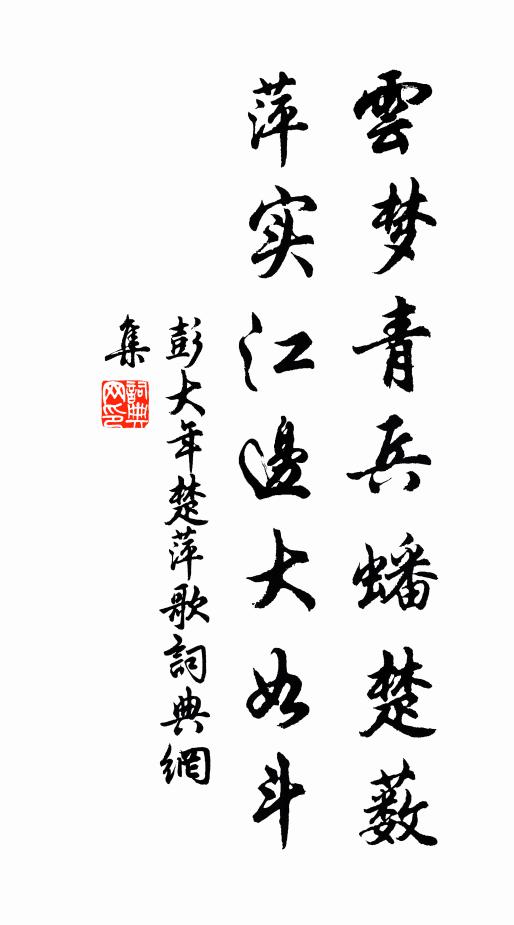 雲梦青兵蟠楚薮
萍实江邊大如斗
彭大年楚萍歌詞典網
集
詞典网印